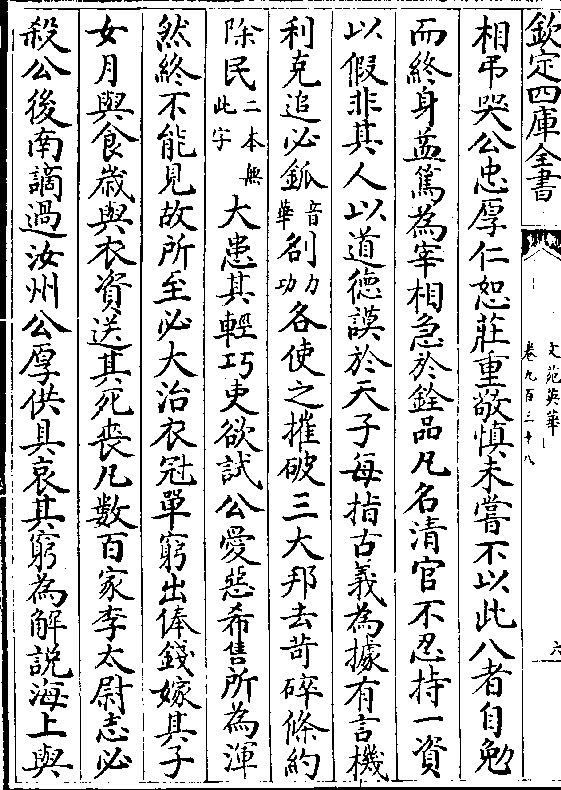 欽定四庫全書
文苑英華
卷九百三十八
六
相弔哭公忠厚仁恕莊重敬慎未嘗不以此八者自勉
而終身葢篤為宰相急於銓品凡名清官不忍持一資
以假非其人以道德謨於天子每指古義為據有言機
利克追必鈲音華刮力功各使之摧破三大邦去苛碎條約
除民二本無此字大患其輕巧吏欲試公愛惡希售所為渾
然終不能見故所至必大治衣冠單窮出俸錢嫁其子
女月與食歲與衣資送其死喪凡數百家李太尉志必
殺公後南謫過汝州公厚供具哀其窮為解說海上與